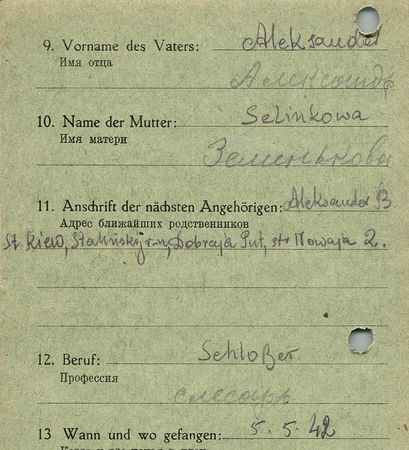 9. Vorname des Vaters: Aleksander
Имя отца Александр
10. Name der Mutter: Selinkowa
Имя матери Зеленькова
11. Anschrift der nächsten Angehörigen: Aleksander B
Адрес ближайших родственников
St Kiew, Stalinskij r-n, Dobraja Put, str Nowaja 2.
12. Beruf: Schloßer
Профессия слесарь
13 Wann und wo gefangen: 5. 5. 42